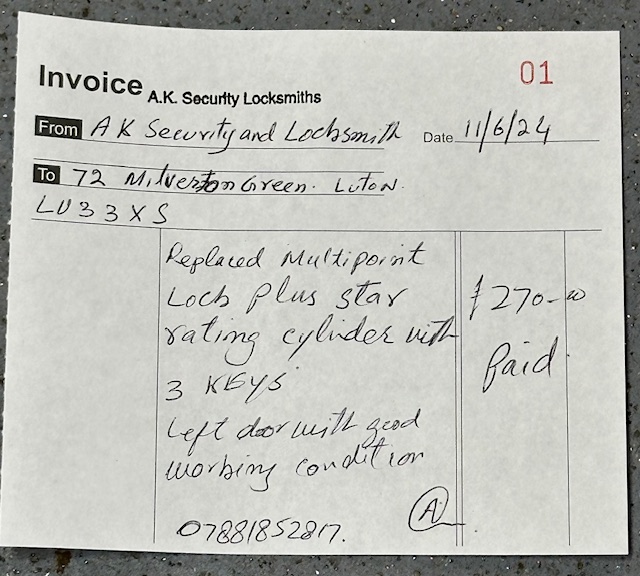 01
Invoice A.K. Security Locksmiths
From A K Security and Locksmith Date 11/6/24
To 72 Milverton Green. Luton.
LU3 3XS
Replaced Multipoint
Lock plus star
rating cylinder with
3 KEYS
£270-00
Paid
Left door with good
working condition
A
07881852817.